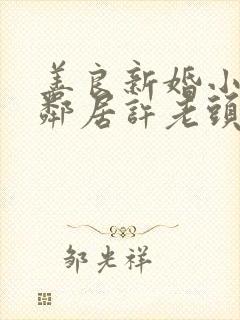 善良新婚小
鄰居許老頭
邹光祥